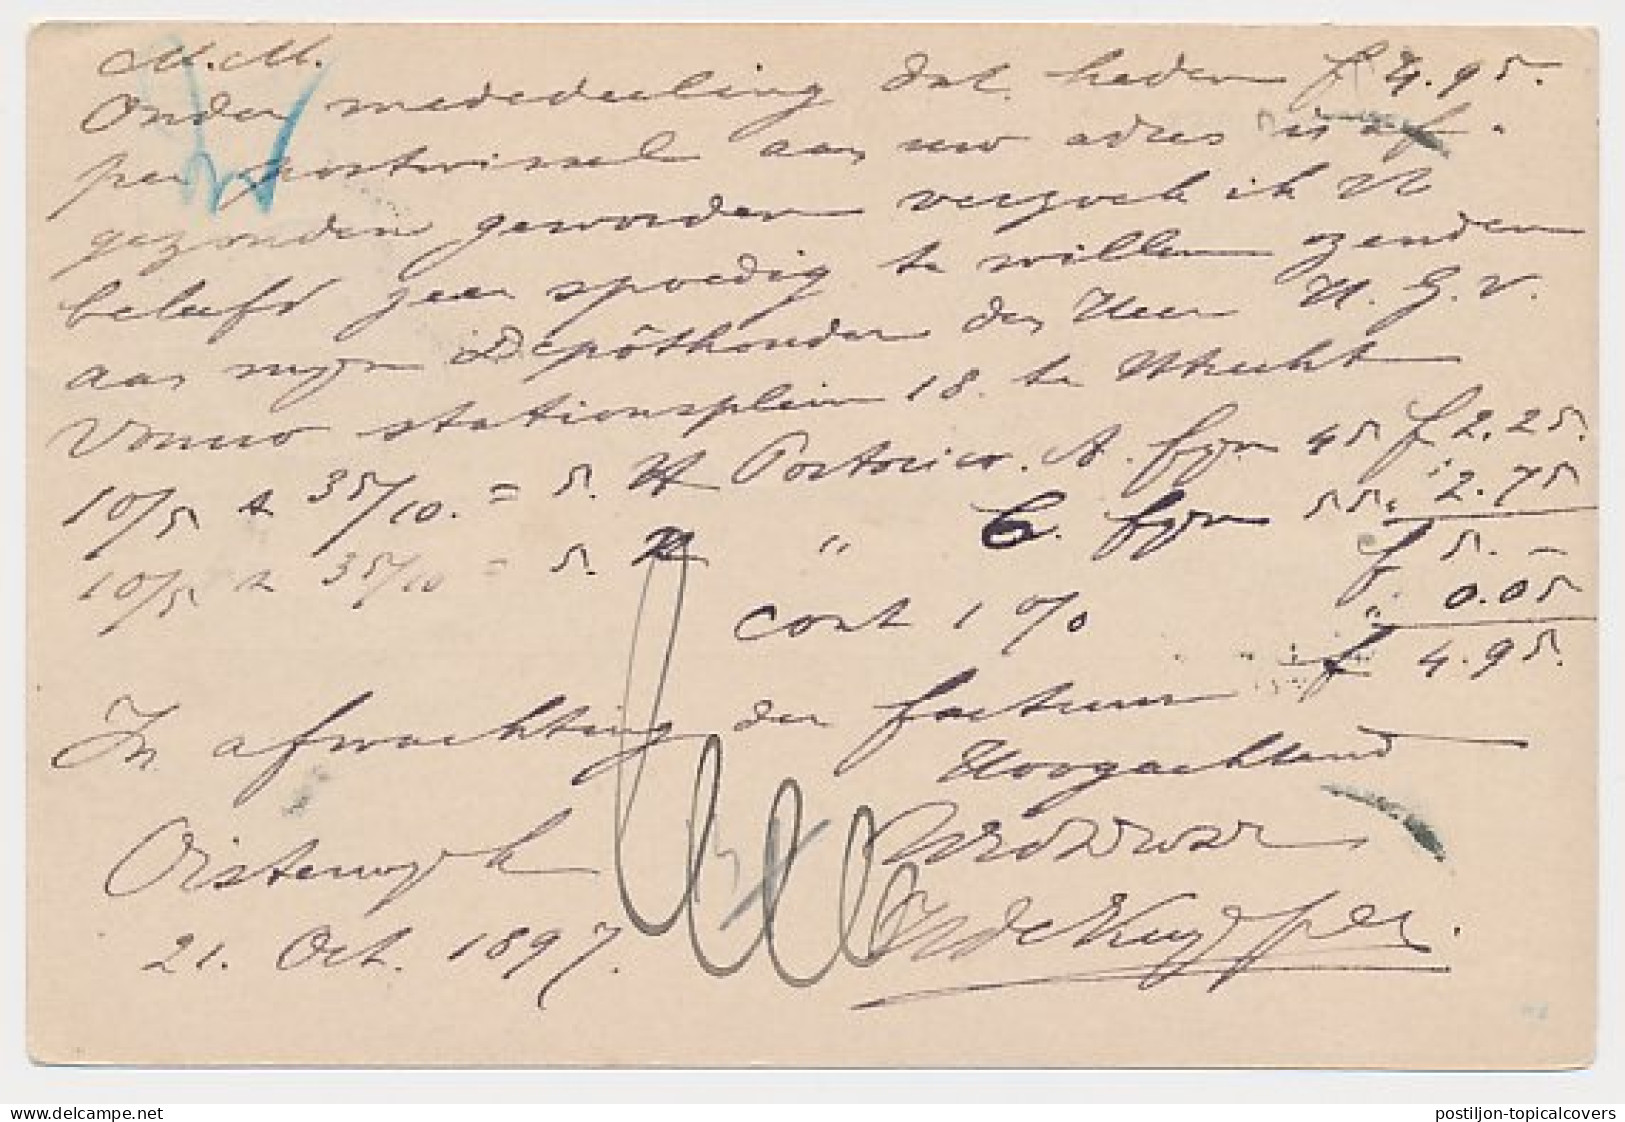 M.M.
Onder mededeeling dat heden f 4.95.
per postwissel aan uw adres is af-
gezonden geworden verzoek ik U
beleefd zeer spoedig te willen zenden
aan mijn Depôthouder den Heer H. G. V.
Vouw stationsplein 18. te Utrecht
10/5 a 35/10. = 5. H Portorico. A. fijn 45. f 2.25.
10/5 a 35/10 = 5. H " C. fijn 55. " 2.75
f 5. –
cont 1 % " 0.05
f 4.95.
In afwachting der factuur
Hoogachtend
Oisterwijk
21. Oct. 1897.
de Kuyper.
© postzegelhandel.com/postiljon-topicalcovers